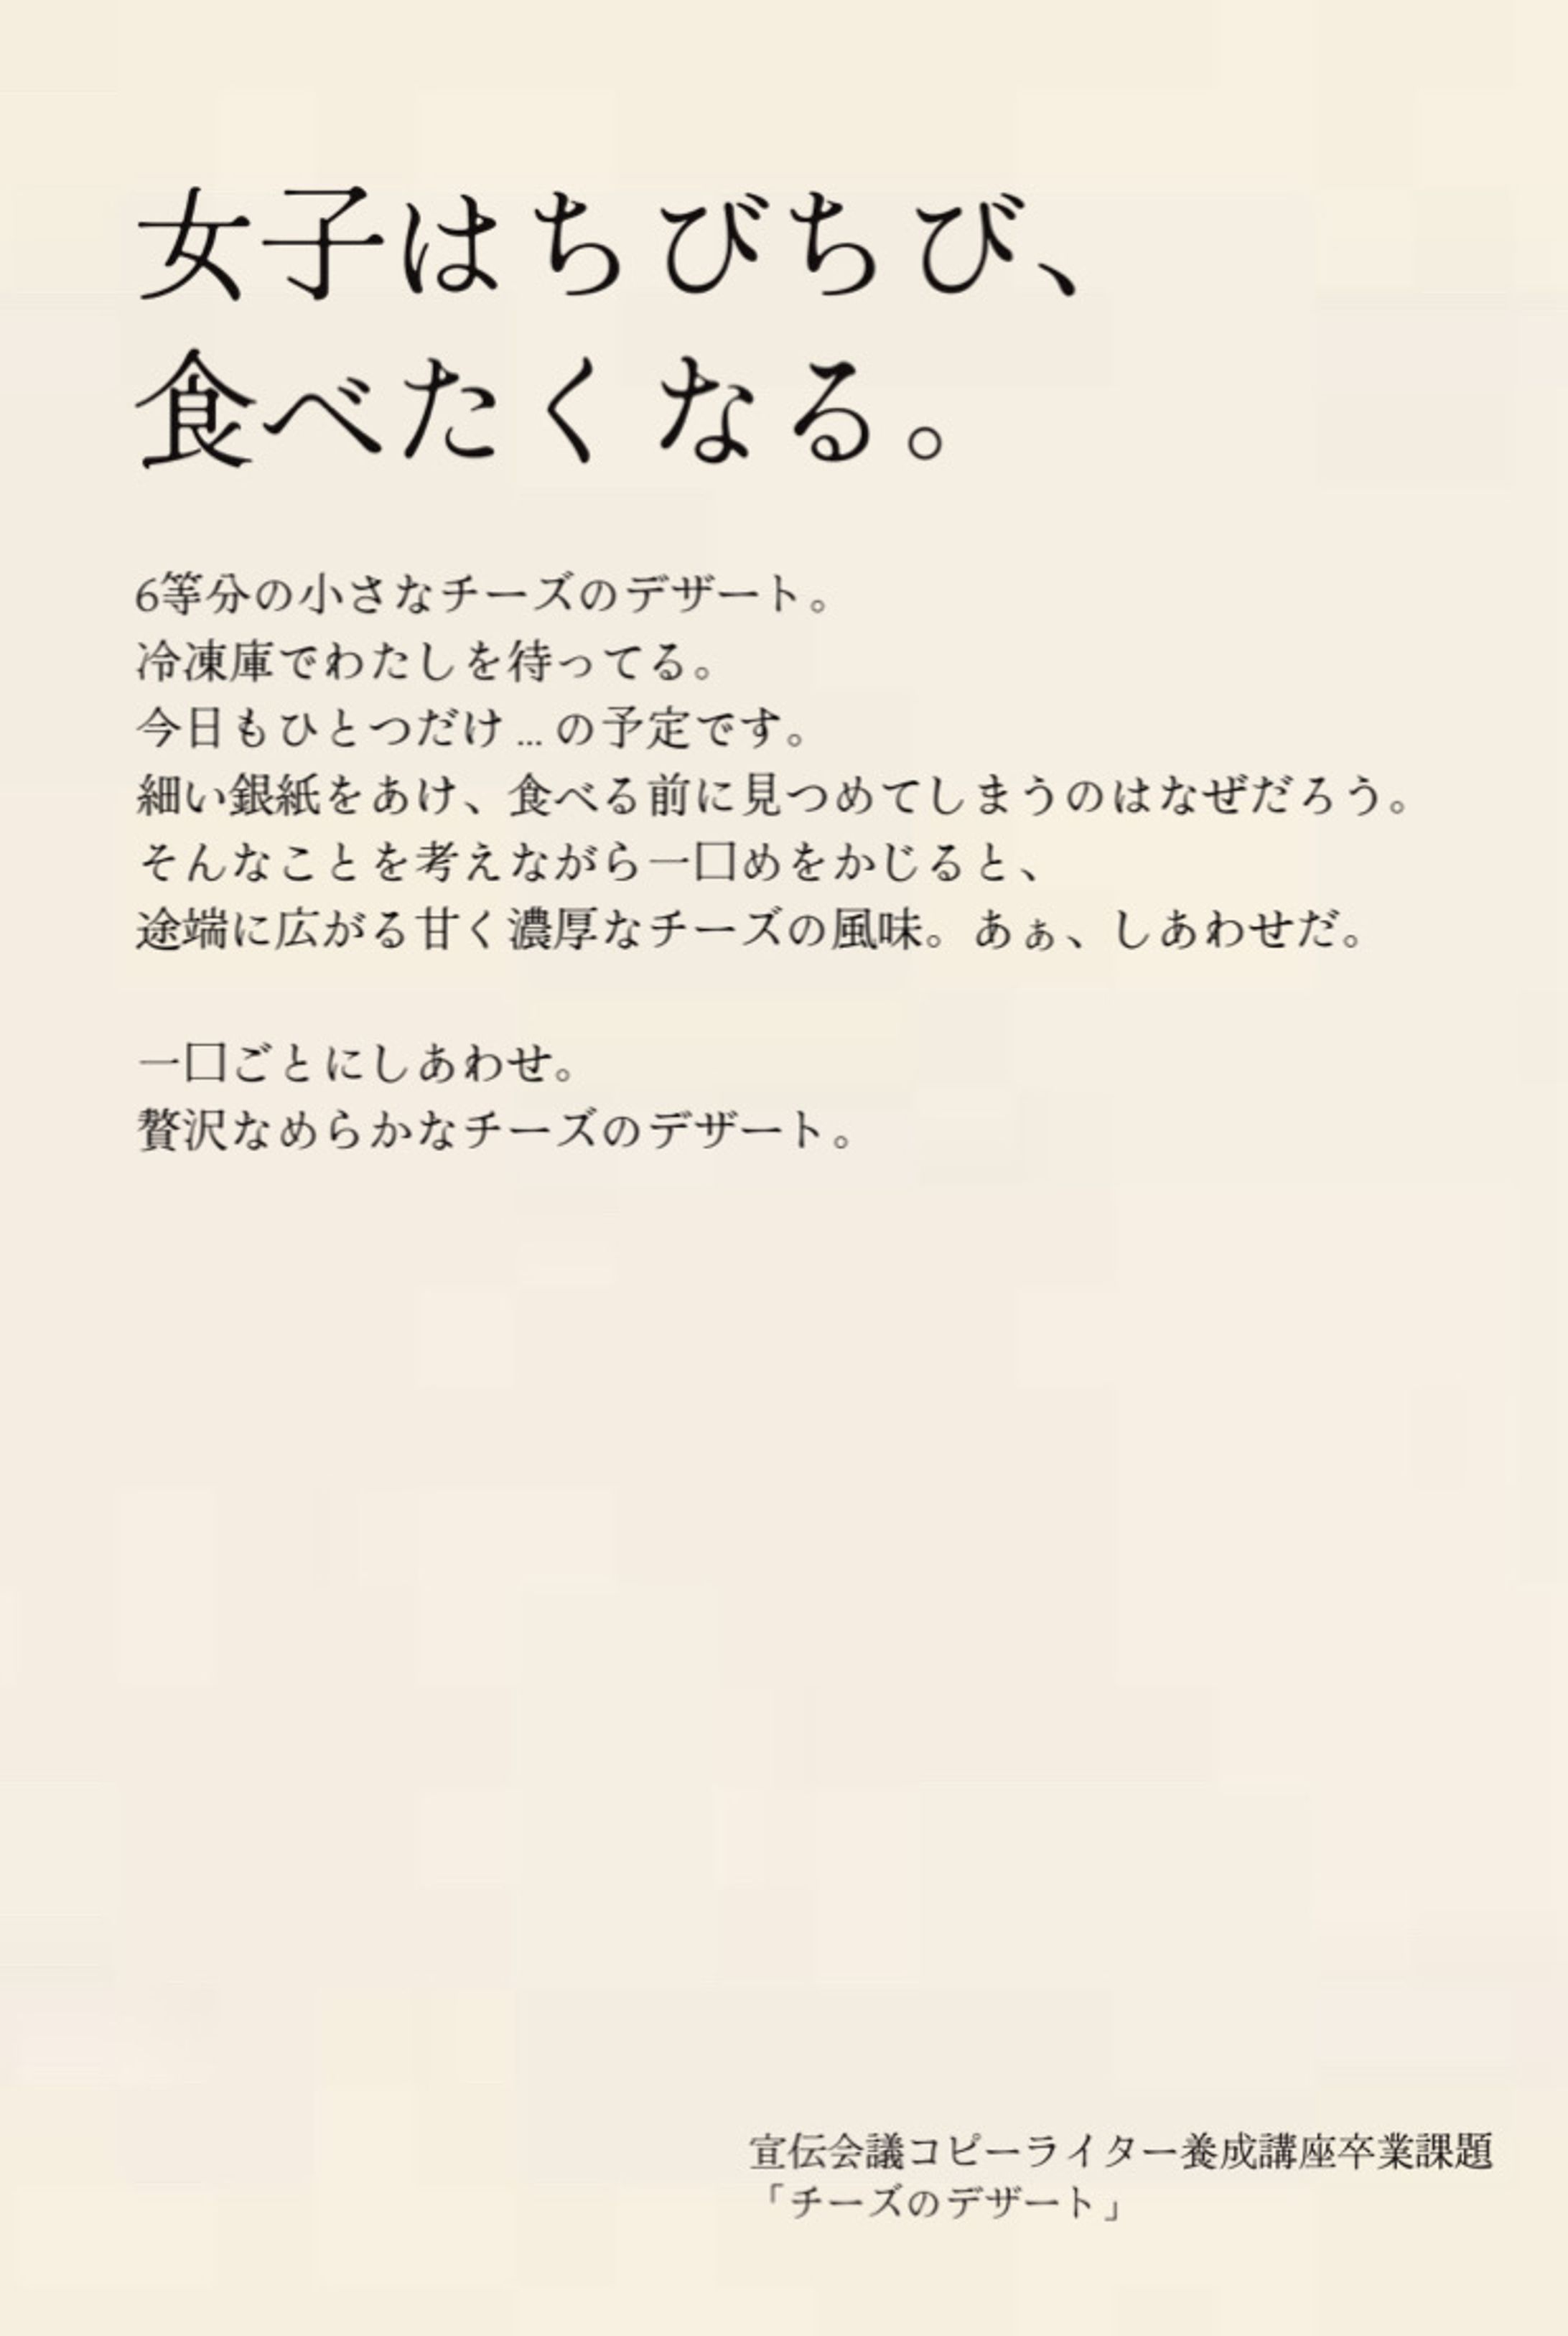 女子はちびちび、
食べたくなる。
6等分の小さなチーズのデザート。
冷凍庫でわたしを待ってる。
今日もひとつだけ ... の予定です。
細い銀紙をあけ、食べる前に見つめてしまうのはなぜだろう。
そんなことを考えながら一口めをかじると、
途端に広がる甘く濃厚なチーズの風味。あぁ、しあわせだ。
一口ごとにしあわせ。
贅沢なめらかなチーズのデザート。
宣伝会議コピーライター養成講座卒業課題
「チーズのデザート」